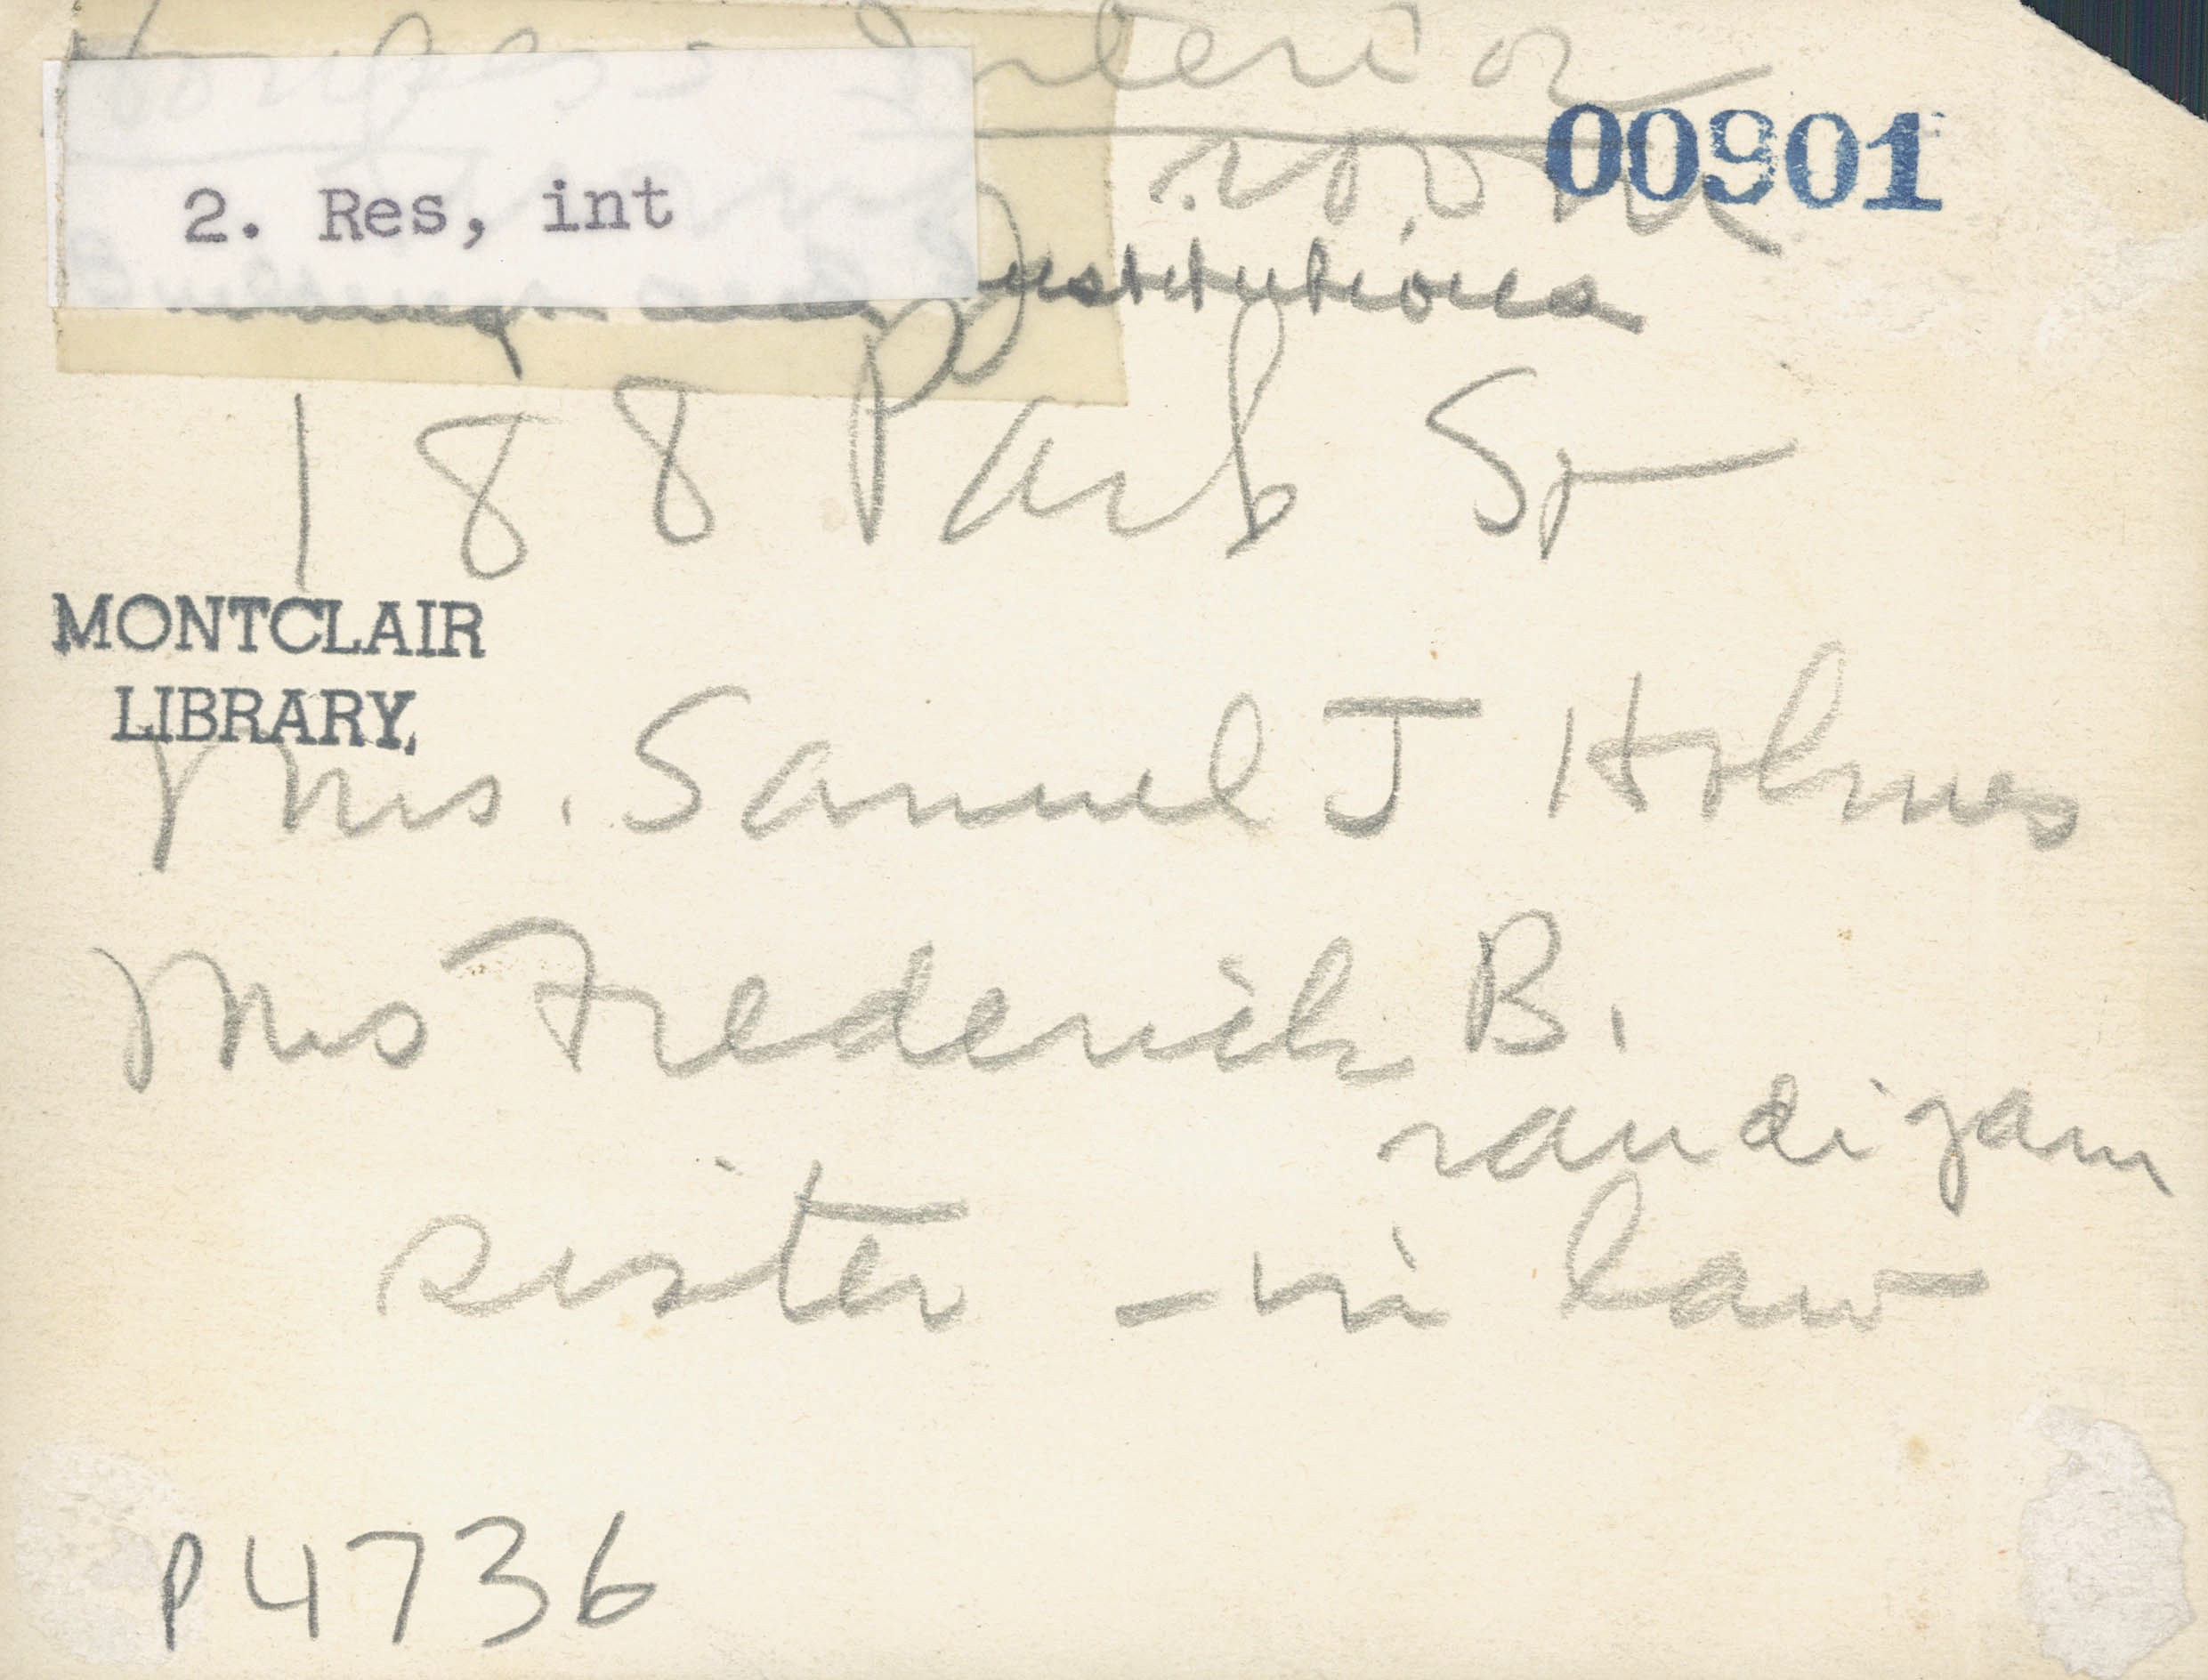 Houses Interior
room
00901
2. Res, int
Institutions
188 Park St
MONTCLAIR
LIBRARY,
Mrs. Samuel J Holmes
Mrs Frederick B.
sister - in law
P4736